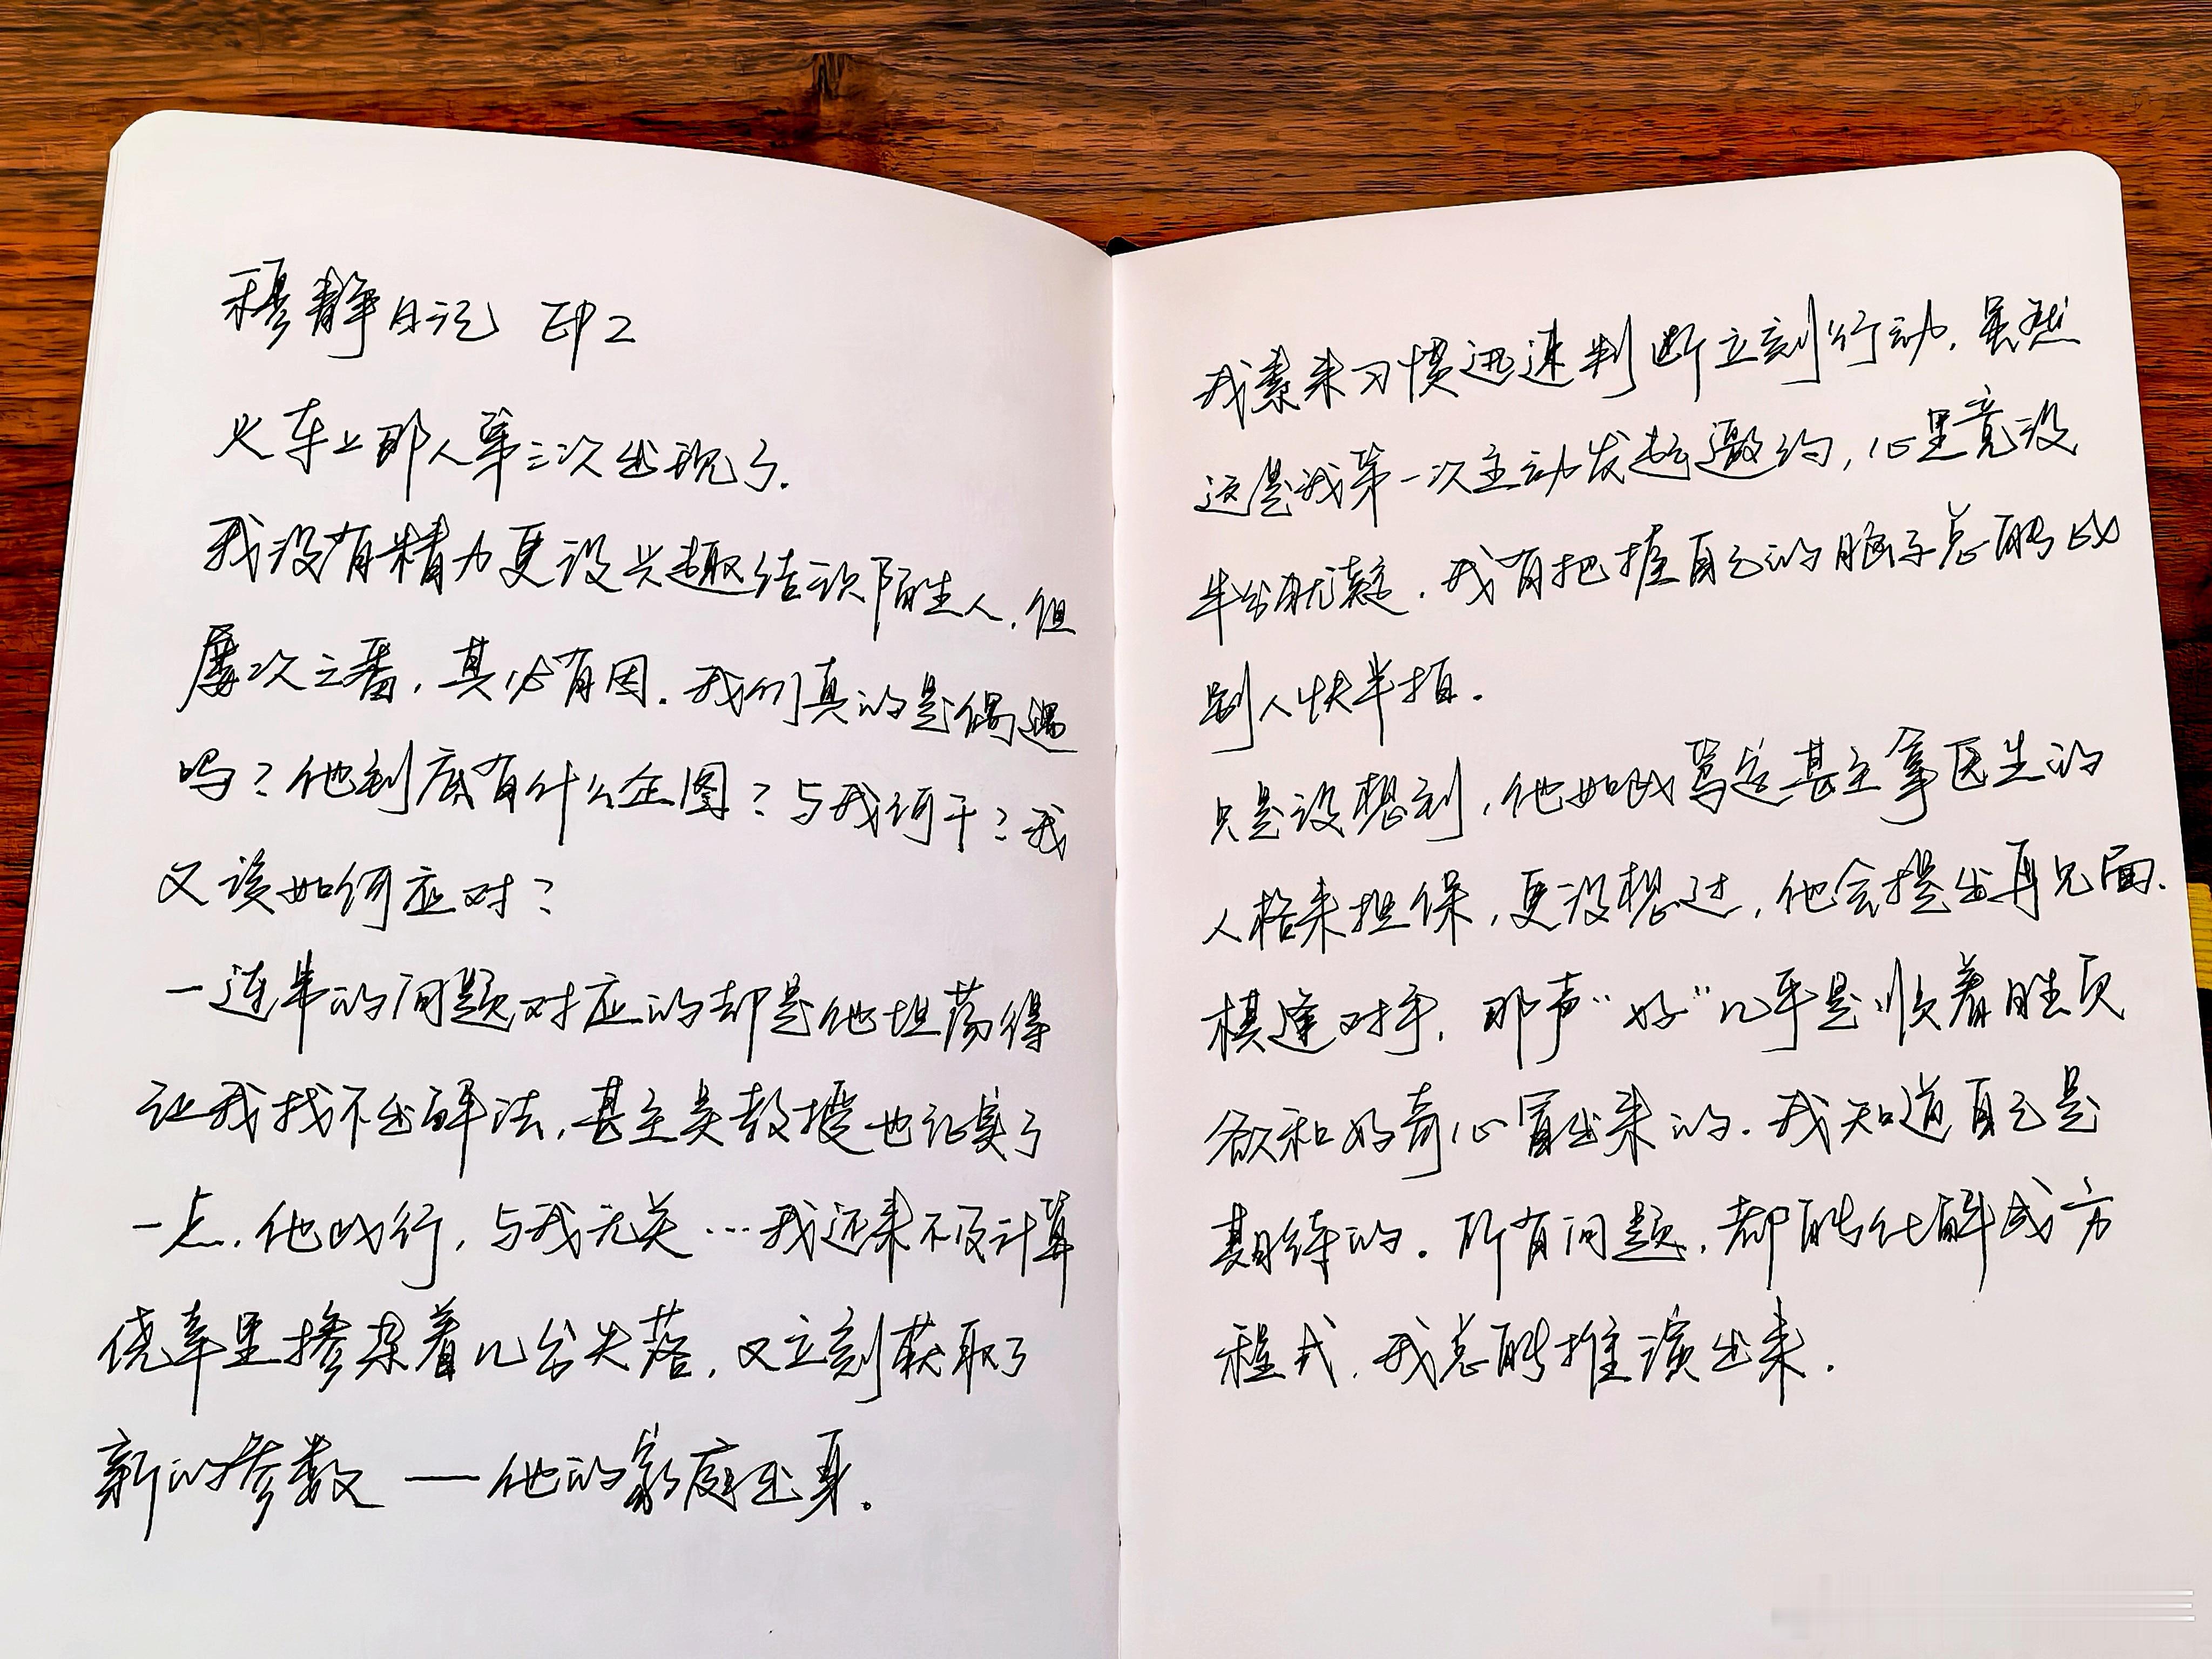 穆静日记 EP2
火车上那人第三次出现了.
我没有精力更没兴趣结识陌生人.但
屡次三番,其必有因.我们真的是偶遇
吗?他到底有什么企图?与我何干?我
又该如何应对?
一连串的问题对应的却是他坦荡得
让我找不出解法,甚至吴教授也证实了
一点.他此行,与我无关…我还来不及计算
侥幸里掺杂着几分失落,又立刻获取了
新的参数——他的家庭出身。
我素来习惯迅速判断立刻行动.虽然
这是我第一次主动发起邀约,心里竟没
半分犹疑.我有把握自己的脑子总能比
别人快半拍.
只是没想到,他如此笃定甚至拿医生的
人格来担保,更没想过,他会提出再见面.
棋逢对手,那声“好”几乎是顺着胜负
欲和好奇心冒出来的.我知道自己是
期待的.所有问题,都能化解成方
程式.我总能推演出来.